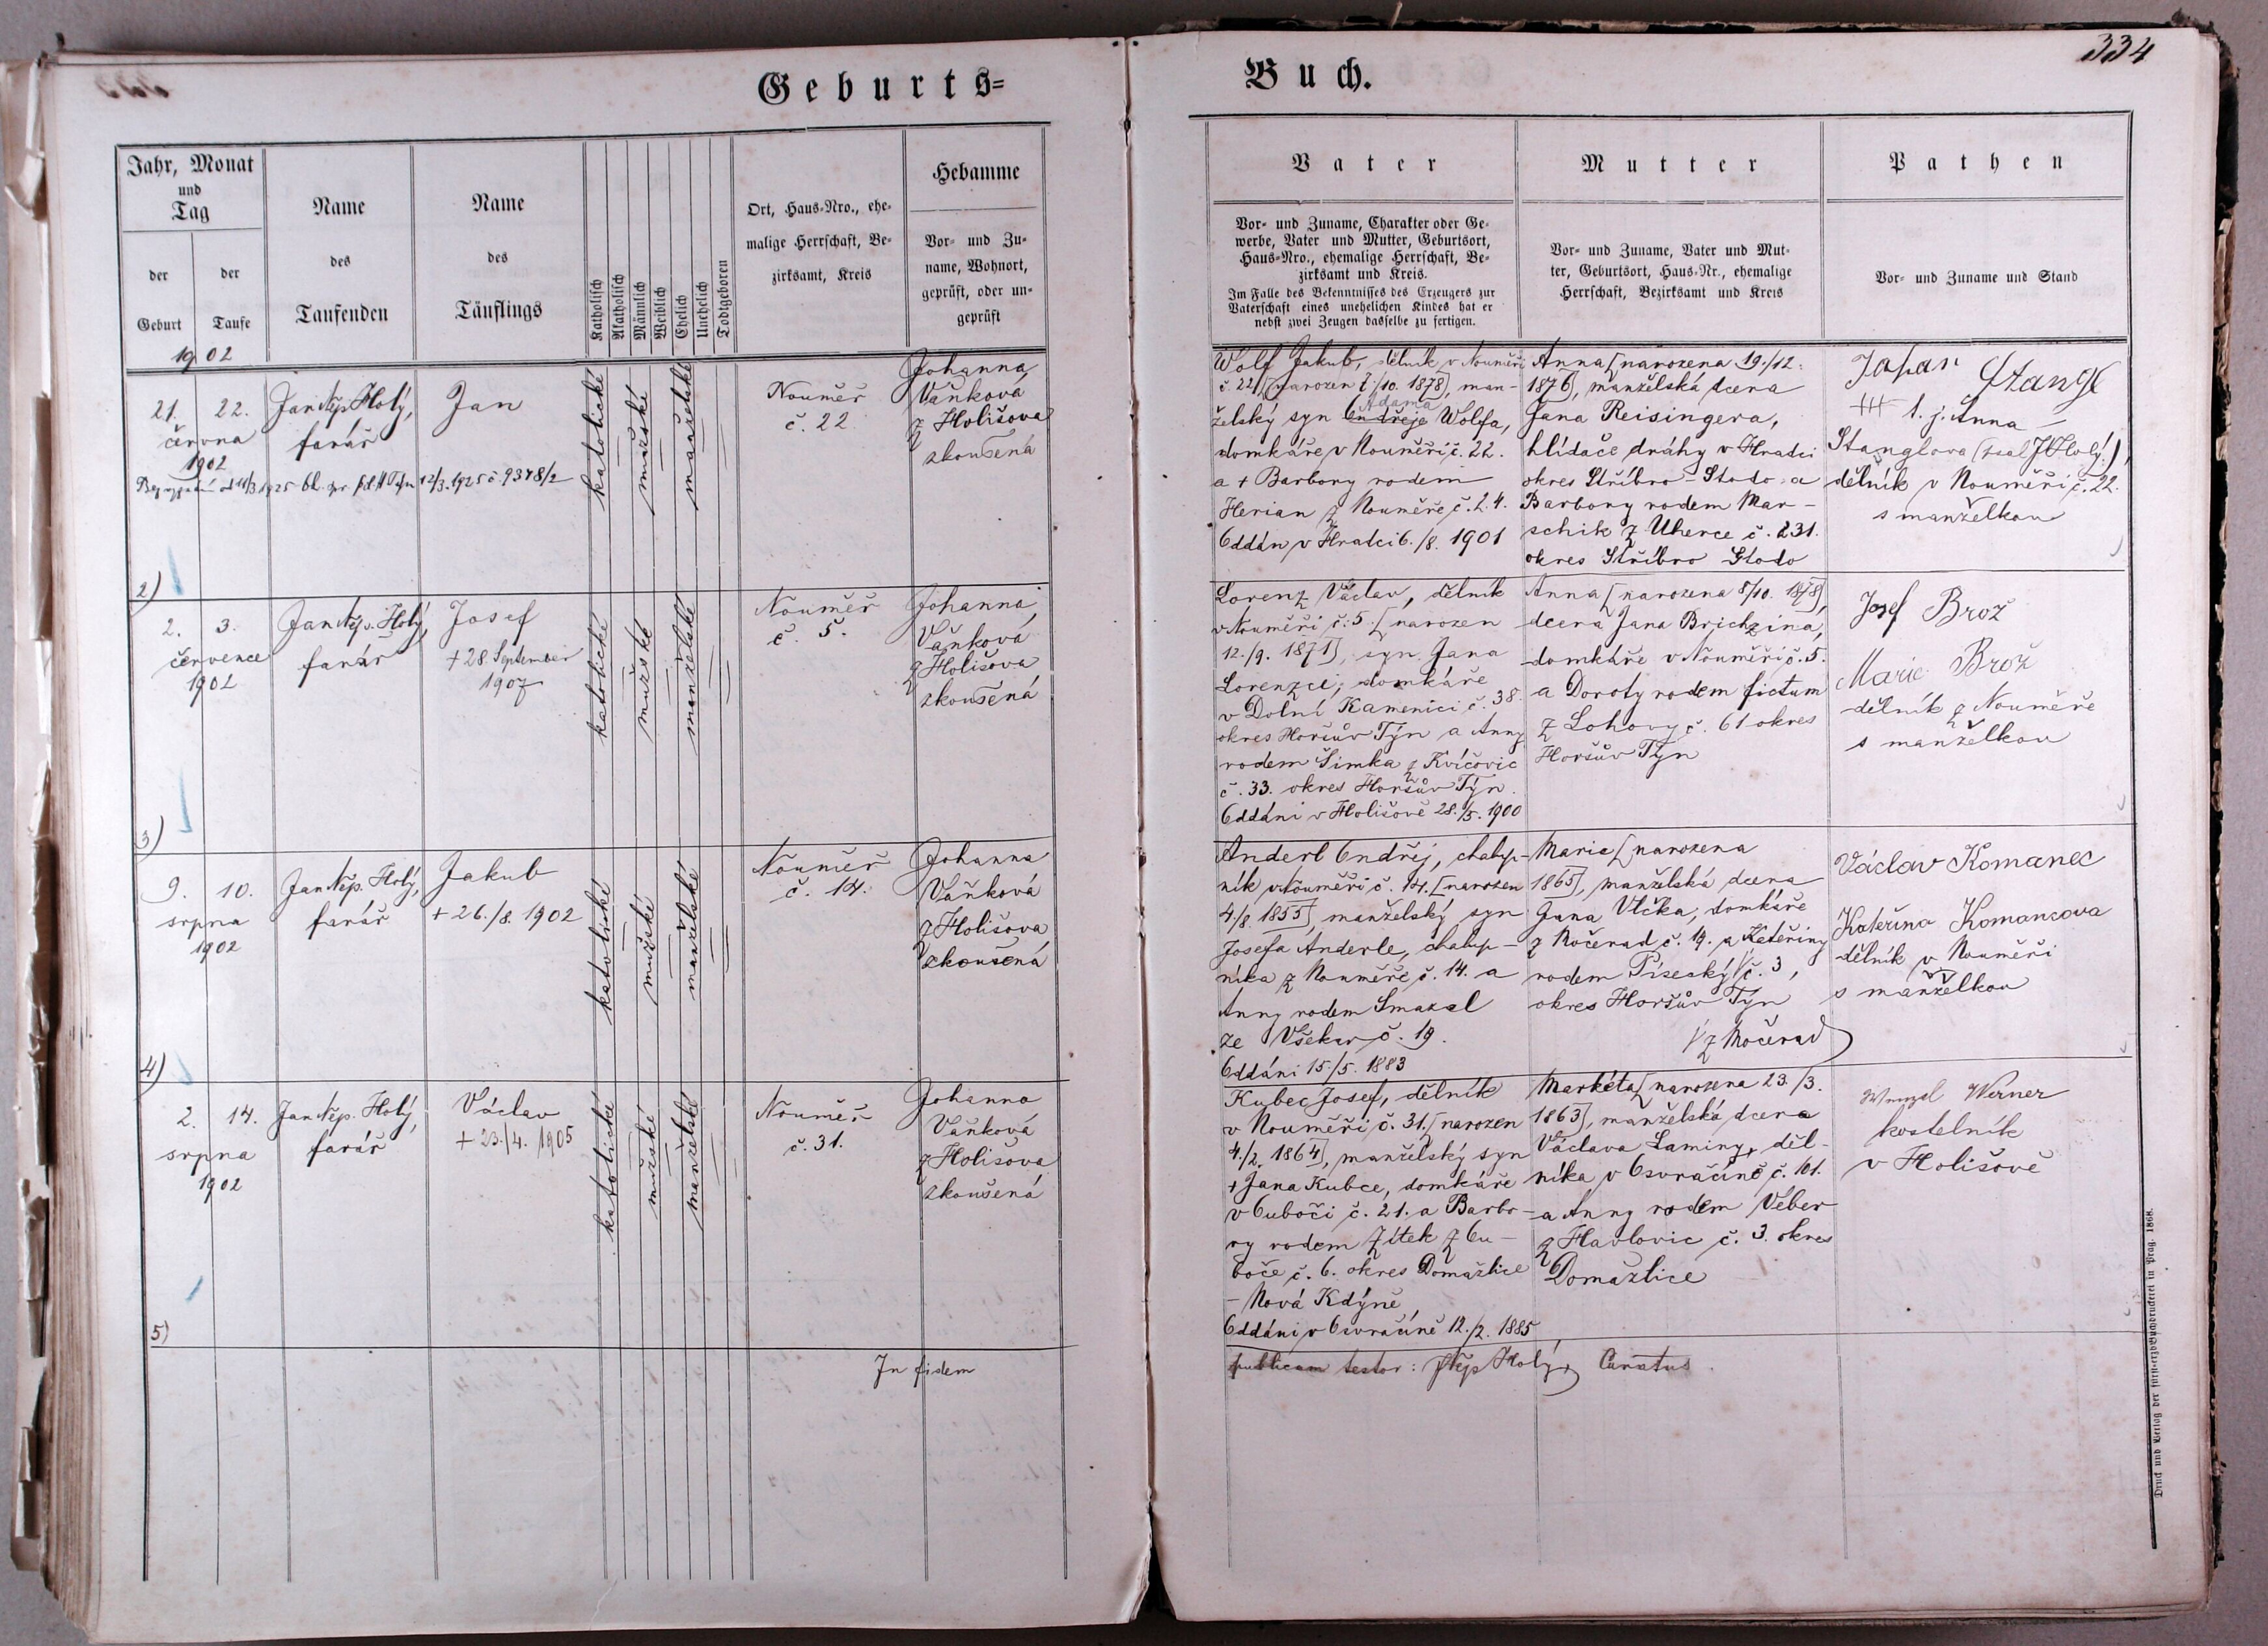 334
Geburts=
Buch.
Jahr, Monat
und
Tag
der
Geburt
der
Taufe
1902
Name
des
Taufenden
Name
des
Täuflings
Katholisch
Akatholisch
Männlich
Weiblich
Ehelich
Unehelich
Todtgeboren
Ort, Haus-Nro., ehe-
malige Herrschaft, Be-
zirksamt, Kreis
Hebamme
Vor- und Zu-
name, Wohnort,
geprüft, oder un-
geprüft
Vater
Vor- und Zuname, Charakter oder Ge-
werbe, Vater und Mutter, Geburtsort,
Haus-Nro., ehemalige Herrschaft, Be-
zirksamt und Kreis.
Im Falle des Bekenntnisses des Erzeugers zur
Vaterschaft eines unehelichen Kindes hat er
nebst zwei Zeugen dasselbe zu fertigen.
Mutter
Vor- und Zuname, Vater und Mut-
ter, Geburtsort, Haus-Nr., ehemalige
Herrschaft, Bezirksamt und Kreis
Pathen
Vor- und Zuname und Stand
21. 22.
června
1902
Jan Nep. Holý,
farář
Jan
12/3. 1925 č. 9378/2
katolické
mužské
manželské
Nouměř
č. 22
Johanna
Vaňková
z Holišova
zkoušená
Wolf Jakub, dělník v Nouměři
č. 22 [narozen č/10. 1878], man-
Adama
želský syn Ondřeje Wolfa,
domkáře v Nouměři č. 22.
a + Barbory rodem
Herian z Nouměře č. 24.
Oddán v Hradci 6./8. 1901
Anna [narozena 19./12.
1876], manželská dcera
Jana Reisingera,
hlídače dráhy v Hradci
okres Stříbro - Stodo a
Barbory rodem Mar-
schik z Uherce č. 231.
okres Stříbro Stodo
Stangl
+++ 1. j. Anna
Stanglova
dělník v Nouměři č. 22.
s manželkou
2)
2. 3.
července
1902
Jan Nep. Holý,
farář
Josef
+ 28. September
1907
katolické
mužské
manželské
Nouměř
č. 5.
Johanna
Vaňková
z Holišova
zkoušená
Lorenz Václav, dělník
v Nouměři č. 5. [narozen
12./9. 1871], syn Jana
Lorenzci, domkáře
v Dolní Kamenici č. 38.
okres Horšův Týn a Anny
rodem Šimka z Kvíčovic
č. 33. okres Horšův Týn.
Oddáni v Holišově 28./5. 1900
Anna [narozena 8/10. 1878]
dcera Jana Brichzina,
domkáře v Nouměři č. 5.
a Doroty rodem fictum
z Lohovy č. 61 okres
Horšův Týn
Josef Brož
Marie Brož
dělník z Nouměře
s manželkou
3)
9. 10.
srpna
1902
Jan Nep. Holý,
farář
Jakub
+ 26./8. 1902
katolické
mužské
manželské
Nouměř
č. 14.
Johanna
Vaňková
z Holišova
zkoušená
Anderl Ondřej, chalup-
ník v Nouměři č. 14. [narozen
4./8. 1855], manželský syn
Josefa Anderle, chalup-
níka z Nouměře č. 14. a
Anny rodem Smazal
ze Všekar č. 19.
Oddáni 15./5. 1883
Marie [narozena
1865], manželská dcera
Jana Vlčka, domkáře
z Močerad č. 19. a Kateřiny
rodem Písecký č. 3,
okres Horšův Týn
z Močerad
Václav Komanec
Kateřina Komancova
dělník v Nouměři
s manželkou
4)
2. 14.
srpna
1902
Jan Nep. Holý,
farář
Václav
+ 23./4. 1905
katolické
mužské
manželské
Nouměř
č. 31.
Johanna
Vaňková
z Holišova
zkoušená
Kubec Josef, dělník
v Nouměři č. 31. [narozen
4./2. 1864], manželský syn
+ Jana Kubce, domkáře
v Ouboči č. 21. a Barbo-
ry rodem Zítek z Ou-
boče č. 6. okres Domažlice
- Nová Kdýně,
Oddáni v Osvračíně 12./2. 1885
Markéta [narozena 23./3.
1863], manželská dcera
Václava Laminy, děl-
níka v Osvračíně č. 101.
a Anny rodem Veber
z Havlovic č. 3. okres
Domažlice
Wenzl Werner
kostelník
v Holišově
5)
In fidem
publicam testor: JNep Holý, Curatus
Druck und Verlag der fürst-erzb. Buchdruckerei in Prag. 1868.